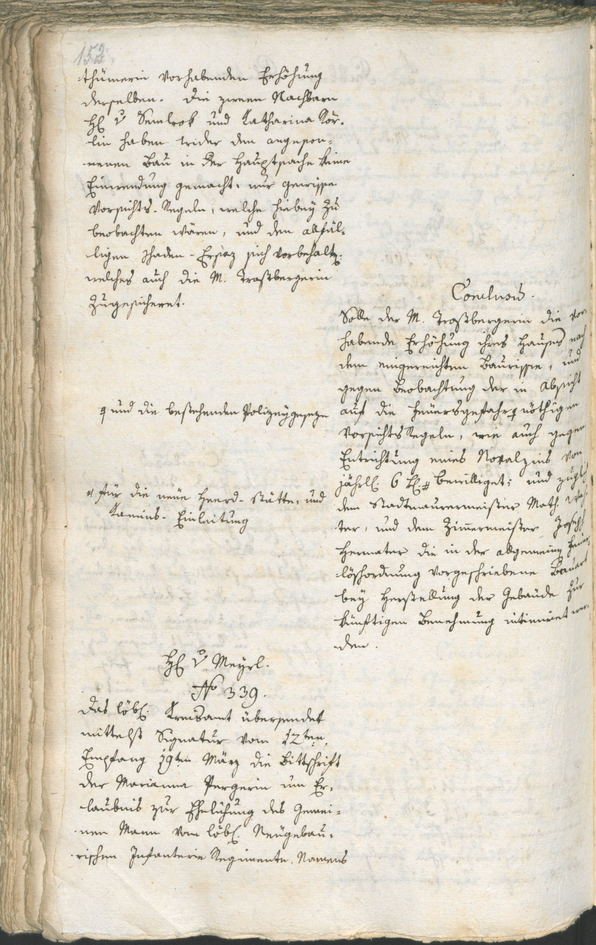 152.
thümerin vorhabenden Erhöhung
derselben. Die zween Nachbarn
H: v Semlrok und Katharina Kör-
lin haben wider den angespon-
nenen Bau in der Hauptsache keine
Einwendung gemacht, nur gewisse
Vorsichts-Regeln, welche hiebey zu
beobachten wären, und den allfäl-
ligen Schaden-Ersaz sich vorbehalten,
welches auch die M. Trostbergerin
zugesicheret.
Conclusum.
Solle der M. Trostbergerin die vor-
habende Erhöhung ihres Hauses nach
dem eingereichten Baurisse, und
gegen Beobachtung der in Absicht
auf die Feuersgefahr nöthigen
Vorsichts Regeln, wie auch gegen
Entrichtung eines Novalzins von
jährl: 6 x bewilliget; und zugl:
dem Stadtmaurermeister Math.
ter, und dem Zimmermeister Joseph
Hermeter die in der allgemein Feuer
löschordnung vorgeschriebene Bauart
bey Herstellung der Gebäude zur
künftigen Benehmung intimiret wer-
den.
und die bestehenden Polizeygeseze
für die neüe Heerd-stätte, und
Kamins-Einleitung
H: v Meyrl.
No 339.
Das löbl: Kreisamt übersendet
mittelst Signatur vom 12ten,
Empfang 19ten März die Bittschrift
der Marianna Pergerin um Er-
laubnis zur Ehelichung des Gemei-
nen Mann vom löbl: Neügebaü-
rischen Infanterie Regimente, Namens